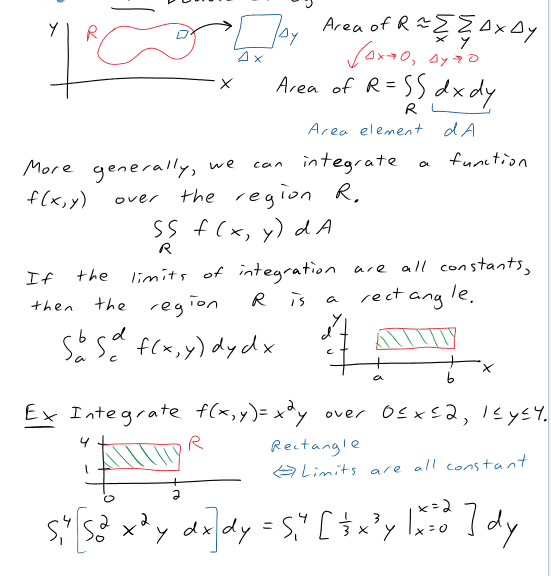 y R Δy Area of R ≈ Σ Σ Δx Δy
x y
Δx Δx→0, Δy→0
x Area of R = ∫∫ dx dy
R
Area element dA
More generally, we can integrate a function
f(x,y) over the region R.
∫∫ f(x, y) dA
R
If the limits of integration are all constants,
then the region R is a rectangle.
∫_a^b ∫_c^d f(x,y) dy dx
y
d
c
a b x
Ex Integrate f(x,y)= x²y over 0≤x≤2, 1≤y≤4.
4 R Rectangle
1 ⇔ Limits are all constant
0 2
∫_1^4 [∫_0^2 x²y dx] dy = ∫_1^4 [ 1/3 x³y |_{x=0}^{x=2} ] dy